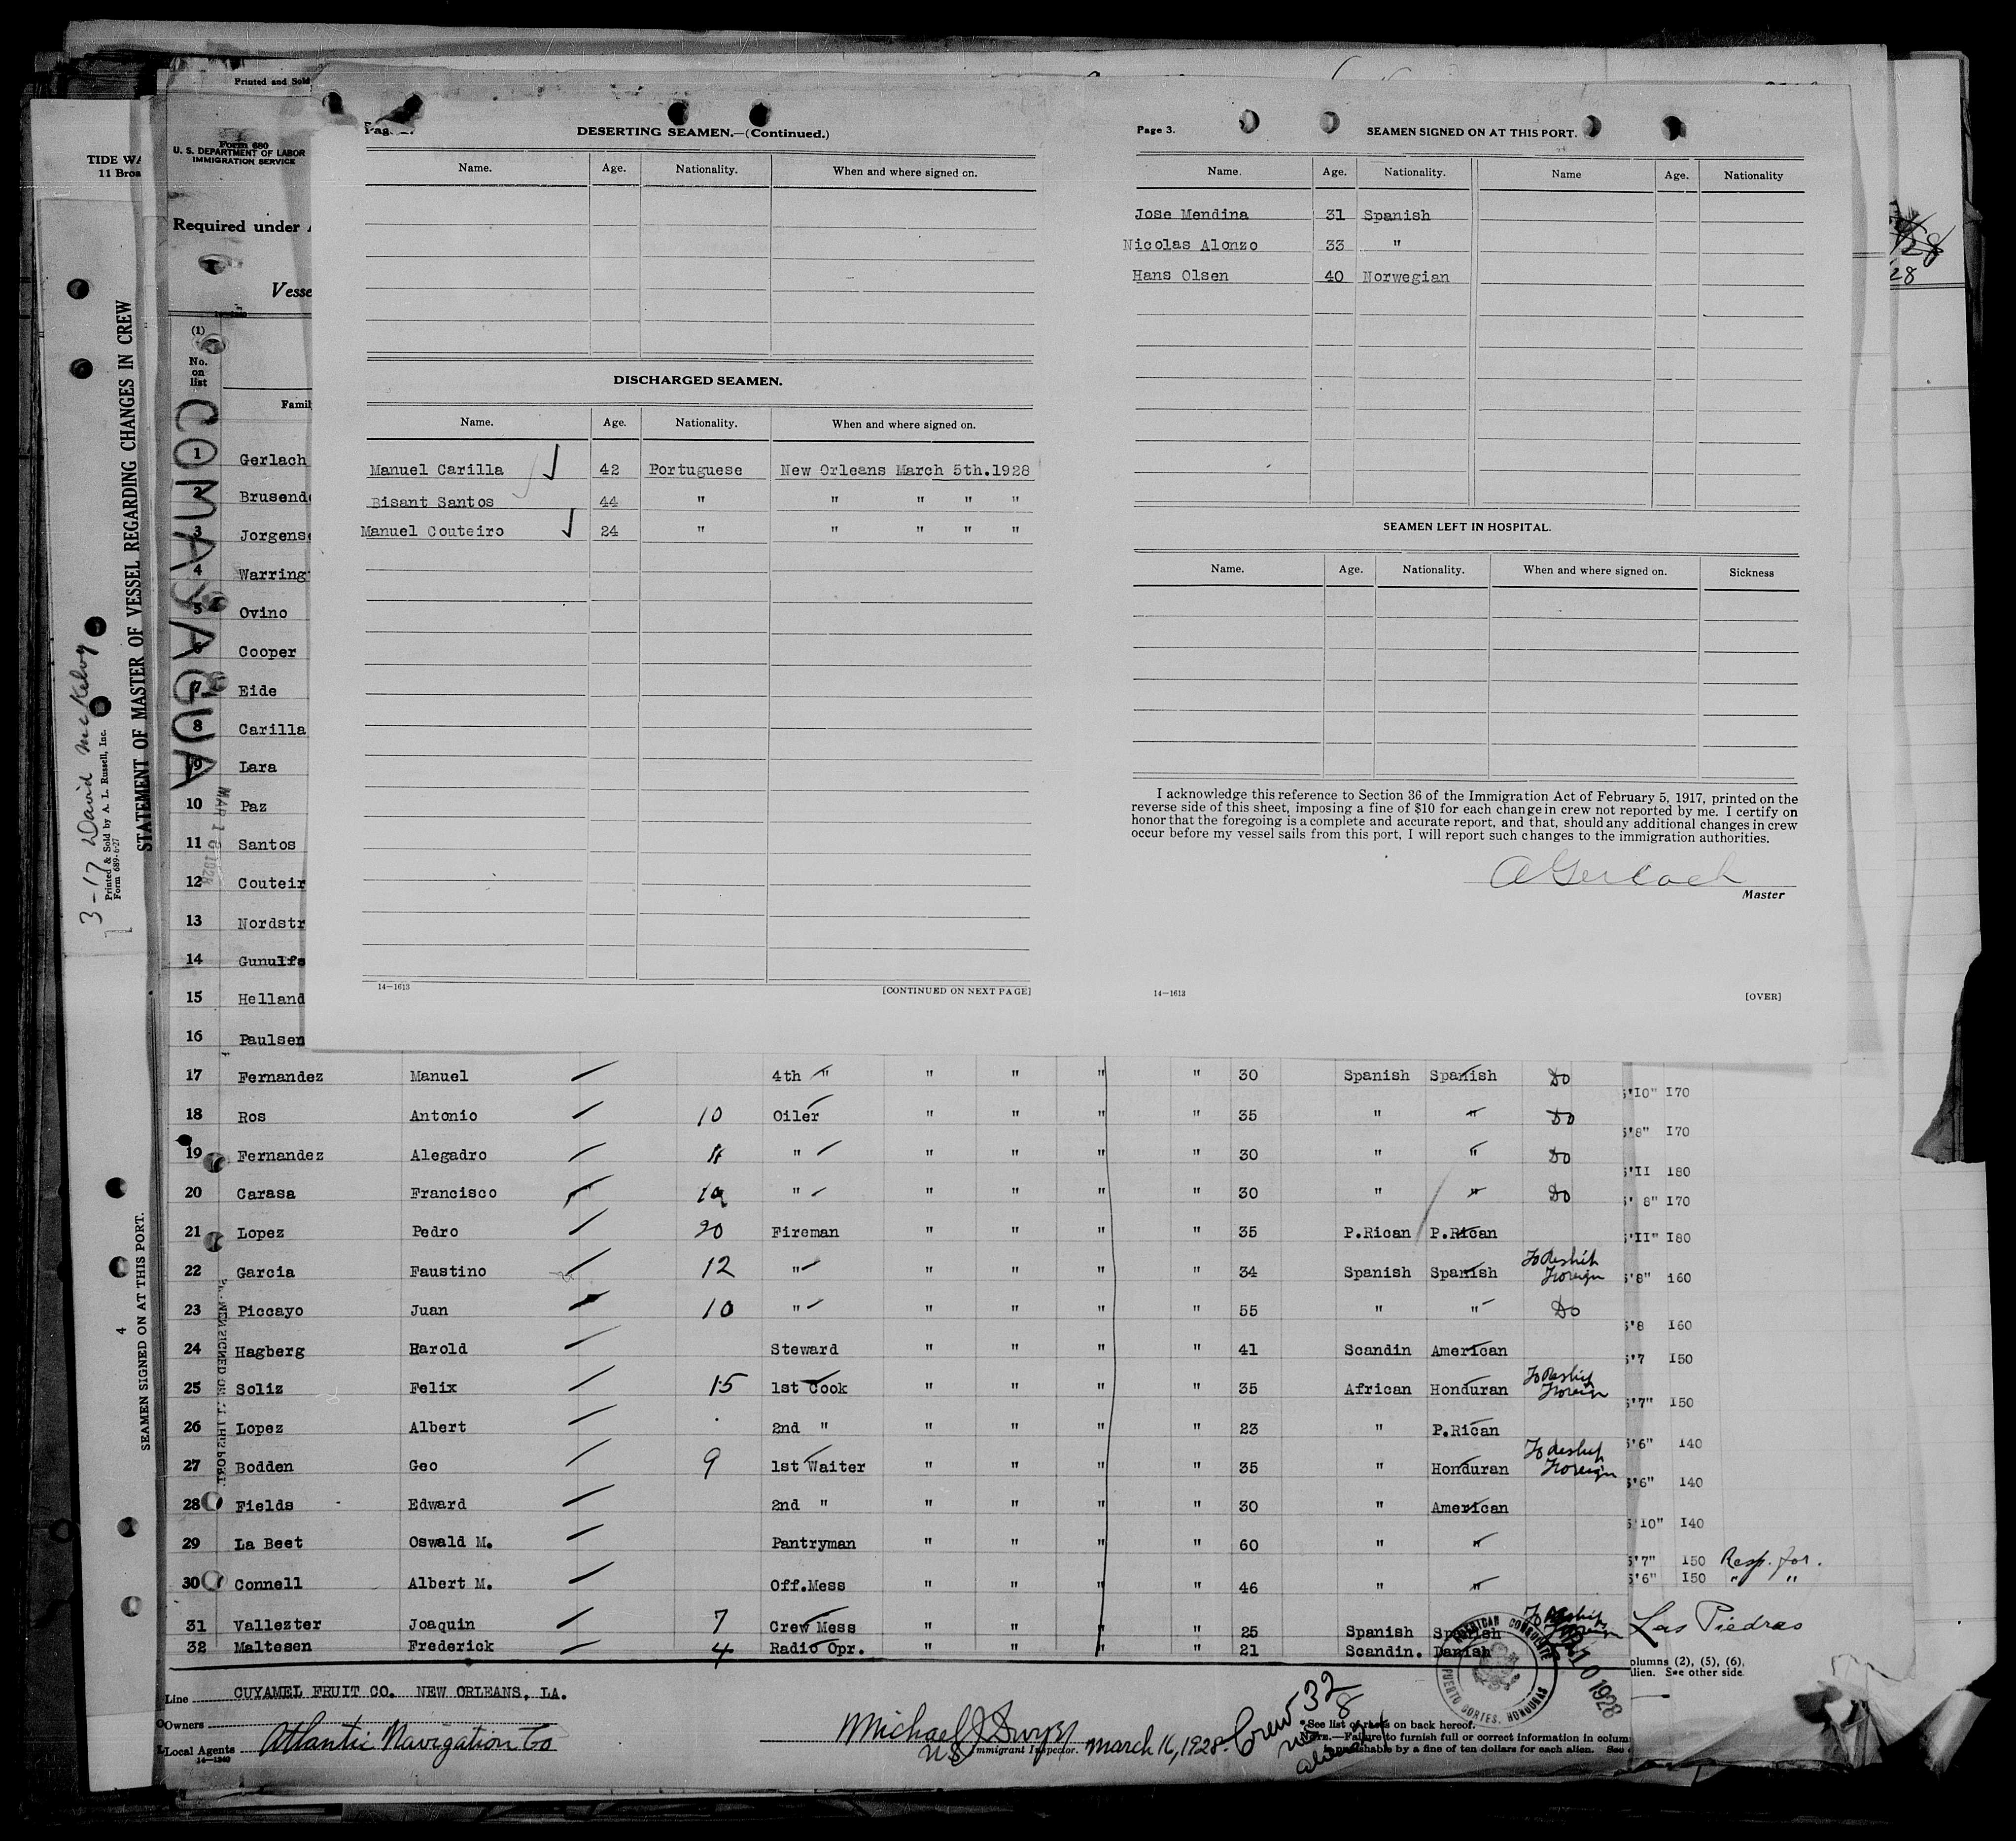 Printed and Sold
Form 680
U. S. DEPARTMENT OF LABOR
IMMIGRATION SERVICE
Required under
Vesse
TIDE WA
11 Broa
STATEMENT OF MASTER OF VESSEL REGARDING CHANGES IN CREW
3-17 David McKelvy
Printed & Sold by A. L. Russell, Inc.
Form 689-6-27
4
SEAMEN SIGNED ON AT THIS PORT.
COMAYAGUA
MAR 16 1928
DESERTING SEAMEN.—(Continued.)
Name. Age. Nationality. When and where signed on.
DISCHARGED SEAMEN.
Name. Age. Nationality. When and where signed on.
Manuel Carilla 42 Portuguese New Orleans March 5th.1928
Bisant Santos 44 " " " " "
Manuel Couteiro 24 " " " " "
14—1613 [CONTINUED ON NEXT PAGE]
Page 3. SEAMEN SIGNED ON AT THIS PORT.
Name. Age. Nationality. Name Age. Nationality
Jose Mendina 31 Spanish
Nicolas Alonzo 33 "
Hans Olsen 40 Norwegian
SEAMEN LEFT IN HOSPITAL.
Name. Age. Nationality. When and where signed on. Sickness
I acknowledge this reference to Section 36 of the Immigration Act of February 5, 1917, printed on the
reverse side of this sheet, imposing a fine of $10 for each change in crew not reported by me. I certify on
honor that the foregoing is a complete and accurate report, and that, should any additional changes in crew
occur before my vessel sails from this port, I will report such changes to the immigration authorities.
A Gerlach
Master
14—1613 [OVER]
(1)
No.
on
list
Famil
1 Gerlach
2 Brusend
3 Jorgense
4 Warring
5 Ovino
6 Cooper
7 Eide
8 Carilla
9 Lara
10 Paz
11 Santos
12 Couteir
13 Nordstr
14 Gunulfs
15 Helland
16 Paulsen
17 Fernandez Manuel 4th " " " " " 30 Spanish Spanish Do
18 Ros Antonio 10 Oiler " " " " 35 " " Do
19 Fernandez Alegadro 11 " " " " " 30 " " Do
20 Carasa Francisco 10 " " " " " 30 " " Do
21 Lopez Pedro 20 Fireman " " " " 35 P.Rican P.Rican
22 Garcia Faustino 12 " " " " " 34 Spanish Spanish To Reship Foreign
23 Piccayo Juan 10 " " " " " 55 " " Do
24 Hagberg Harold Steward " " " " 41 Scandin American
25 Soliz Felix 15 1st Cook " " " " 35 African Honduran To Reship Foreign
26 Lopez Albert 2nd " " " " " 23 " P.Rican
27 Bodden Geo 9 1st Waiter " " " " 35 " Honduran To Reship Foreign
28 Fields Edward 2nd " " " " " 30 " American
29 La Beet Oswald M. Pantryman " " " " 60 " "
30 Connell Albert M. Off.Mess " " " " 46 " "
31 Vallezter Joaquin 7 Crew Mess " " " " 25 Spanish Spanish To Reship Foreign
32 Maltesen Frederick 4 Radio Opr. " " " " 21 Scandin. Danish
5'10" I70
5'8" I70
5'II I80
5' 8" I70
5'II" I80
5'8" I60
5'8 I60
5'7 I50
5'7" I50
5'6" I40
5'6" I40
5'10" I40
5'7" I50 Resp. for.
5'6" I50 " "
Las Piedras
olumns (2), (5), (6),
alien. See other side
Line CUYAMEL FRUIT CO. NEW ORLEANS, LA.
Owners
Local Agents Atlantic Navigation Co
14—1240
US Immigrant Inspector. March 16, 1928.
Crew 32
8
AMERICAN CONSULATE
PUERTO CORTES, HONDURAS
10 1928
*See list of races on back hereof.
NOTE.—Failure to furnish full or correct information in colum
is punishable by a fine of ten dollars for each alien. See
28